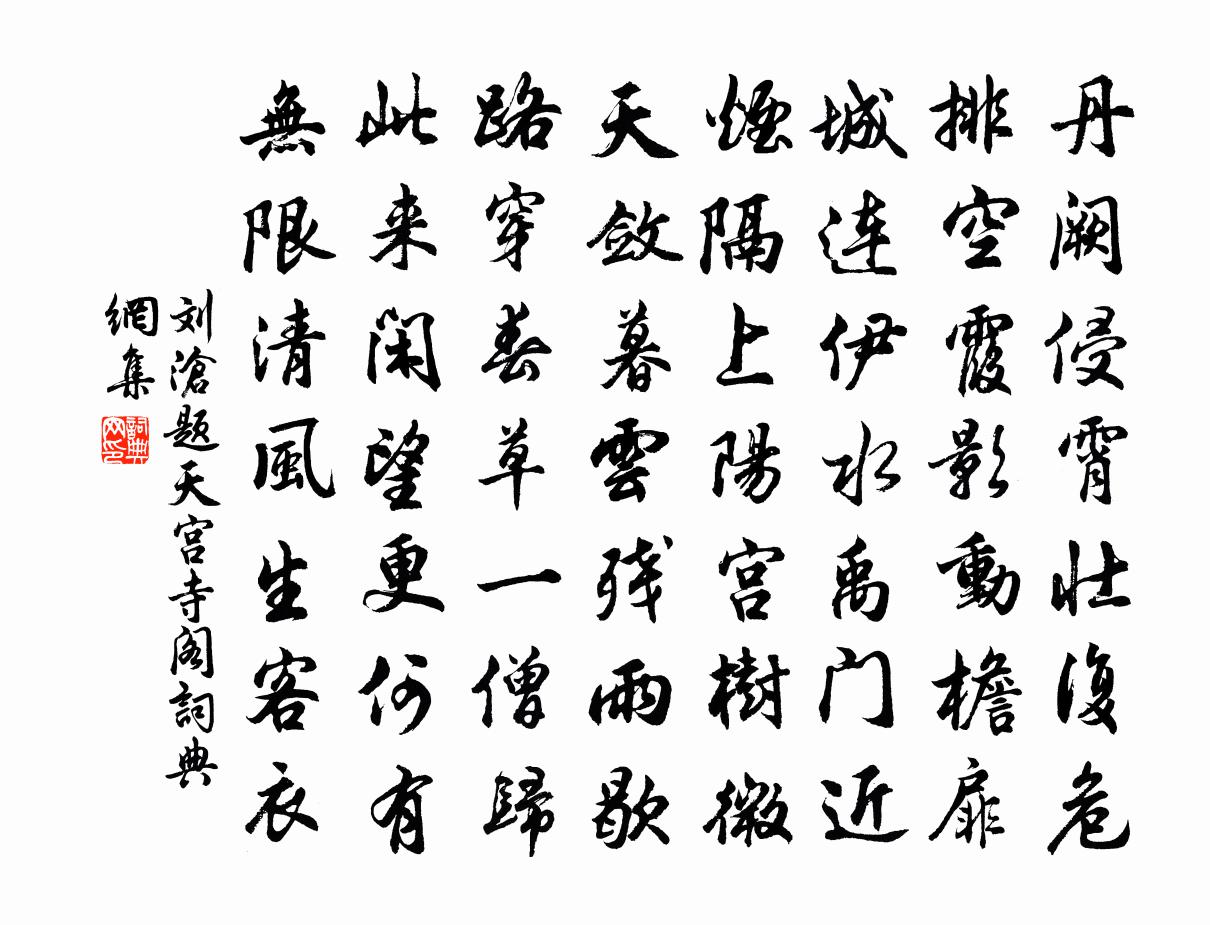 丹闕侵霄壮復危
排空霞影動檐扉
城連伊水禹门近
煙隔上陽宮樹微
天斂暮雲残雨歇
路穿春草一僧歸
此来閑望更何有
無限清風生客衣
刘滄題天宮寺阁詞典
網集
詞典
网印